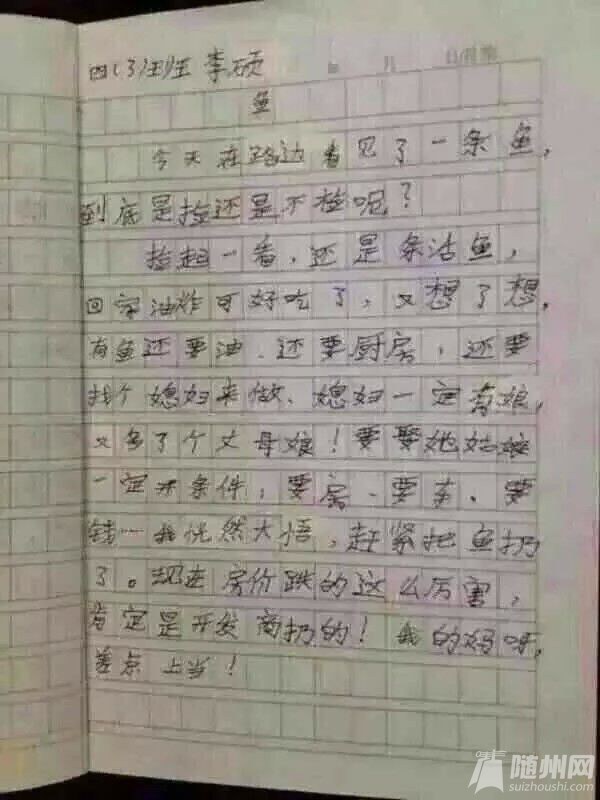 四(3)班 李硕
年 月 日星期
鱼
今天在路边看见了一条鱼,
到底是捡还是不捡呢?
捡起一看,还是条活鱼,
回家油炸可好吃了,又想了想,
有鱼还要油、还要厨房,还要
找个媳妇来做、媳妇一定有娘,
又多了个丈母娘!要娶她姑娘
一定开条件,要房、要车、要
钱…我恍然大悟,赶紧把鱼扔
了。现在房价跌的这么厉害,
肯定是开发商扔的!我的妈呀,
差点上当!
随州网
suizhoushi.com